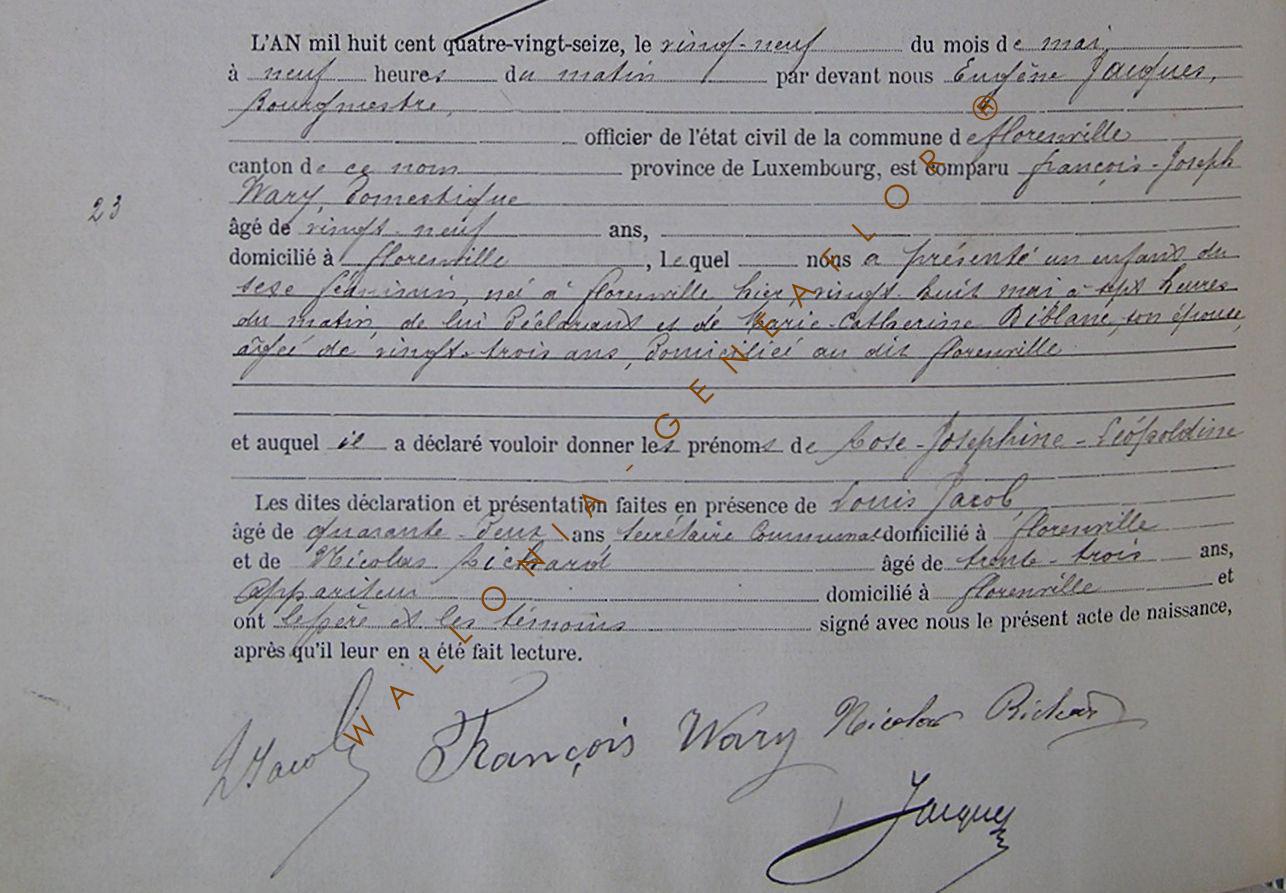 L'AN mil huit cent quatre-vingt-seize, le vingt-neuf du mois de mai,
à neuf heures du matin par devant nous Eugène Jacques,
Bourgmestre,
officier de l'état civil de la commune de florenville
canton de ce nom province de Luxembourg, est comparu françois-Joseph
Wary, Domestique
23
âgé de vingt-neuf ans,
domicilié à florenville, lequel nous a présenté un enfant du
sexe féminin, né à florenville hier, vingt-huit mai à sept heures
du matin, de lui Déclarant et de Marie-Catherine son épouse,
âgée de vingt-trois ans, Domiciliée au dit florenville
et auquel il a déclaré vouloir donner les prénoms de Rose-Josephine-Léopoldine
Les dites déclaration et présentation faites en présence de Louis Jacob,
âgé de quarante-Deux ans Secrétaire Communal domicilié à florenville
et de Nicolas Richard âgé de trente-trois ans,
appariteur domicilié à florenville et
ont le père et les témoins signé avec nous le présent acte de naissance,
après qu'il leur en a été fait lecture.
LJacob François Wary Nicolas Richard
Jacques
WALLONIA-GENEAFLOR®